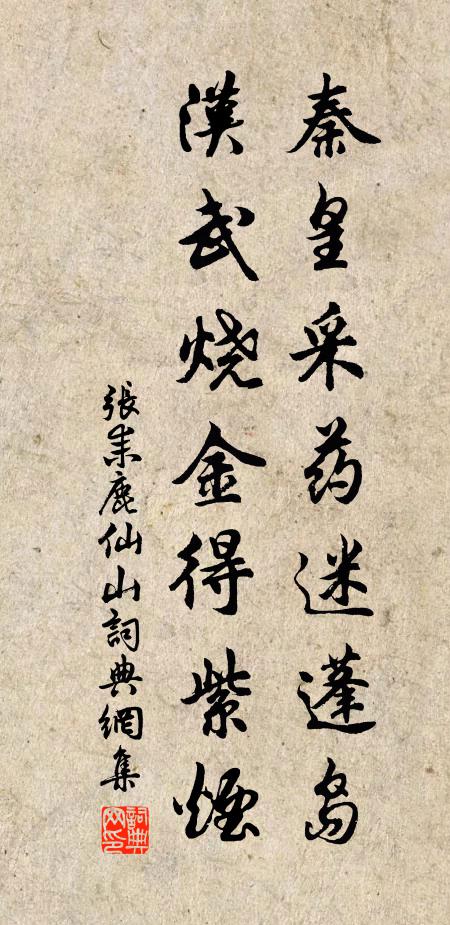 秦皇采药迷蓬岛
漢武烧金得紫煙
張耒鹿仙山詞典網集
詞典网印